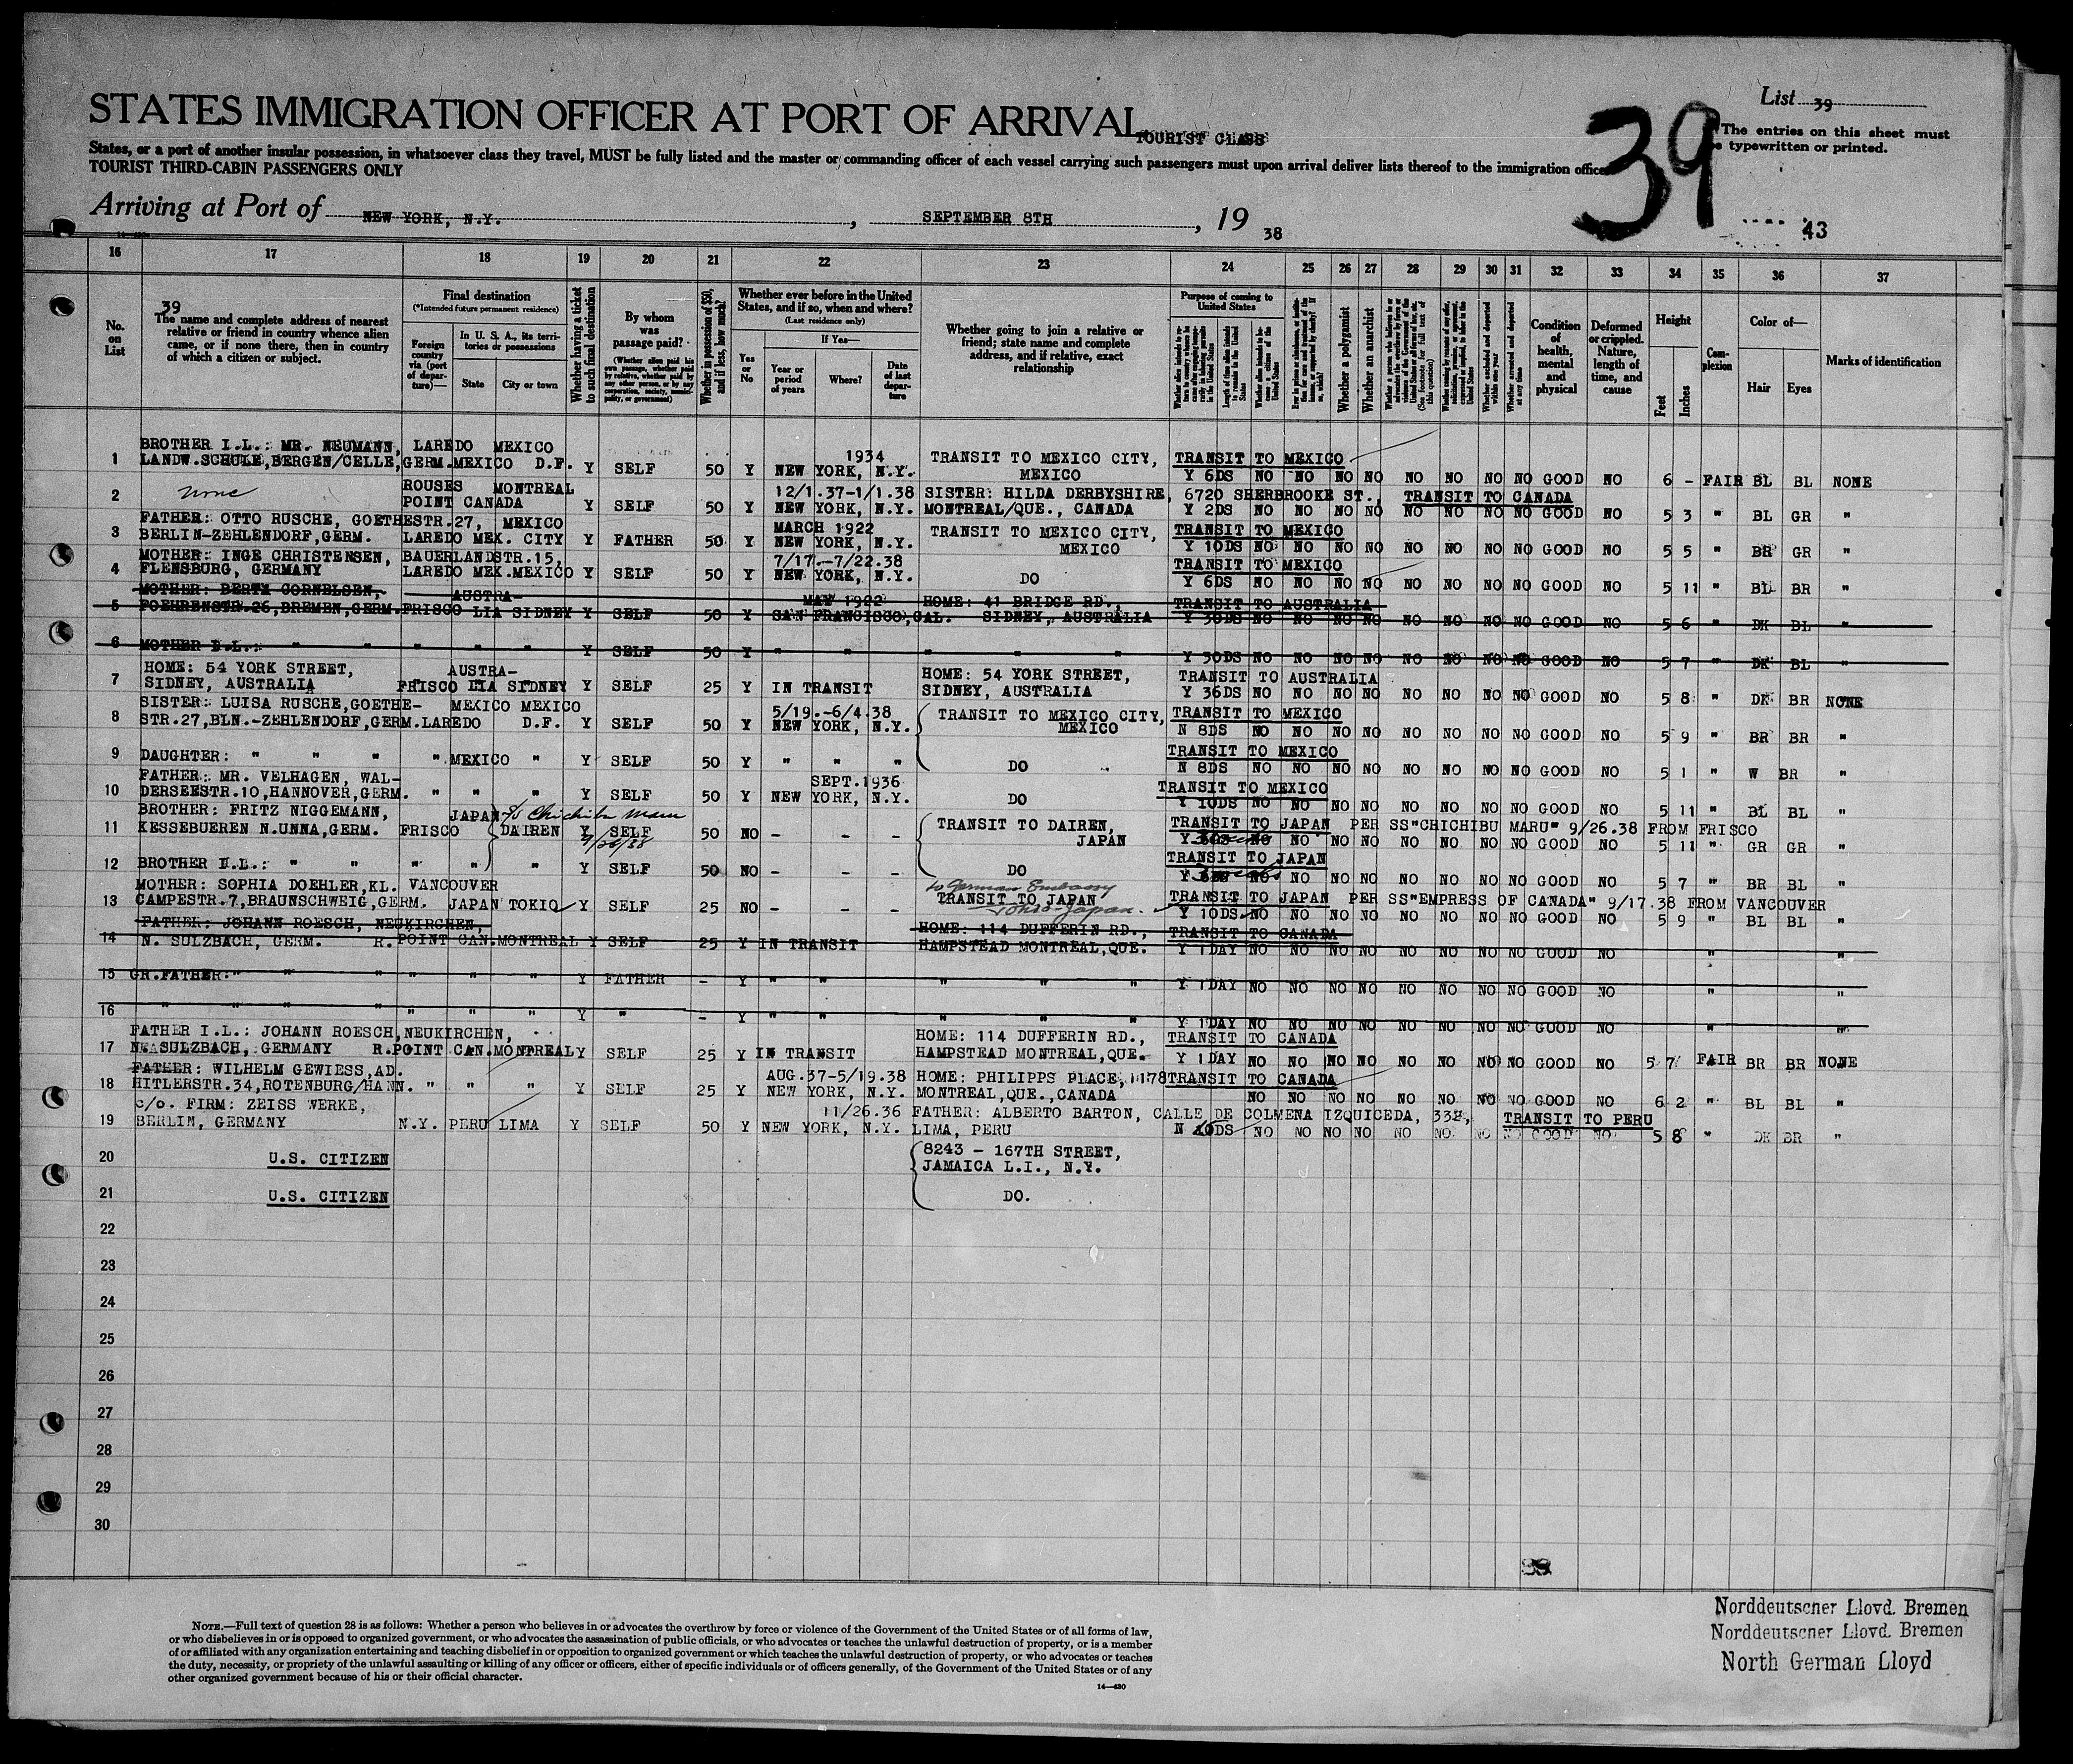 List 39
STATES IMMIGRATION OFFICER AT PORT OF ARRIVAL
TOURIST CLASS
39
The entries on this sheet must
be typewritten or printed.
States, or a port of another insular possession, in whatsoever class they travel, MUST be fully listed and the master or commanding officer of each vessel carrying such passengers must upon arrival deliver lists thereof to the immigration officer
TOURIST THIRD-CABIN PASSENGERS ONLY
Arriving at Port of NEW YORK, N.Y. , SEPTEMBER 8TH , 19 38
43
16 17 18 19 20 21 22 23 24 25 26 27 28 29 30 31 32 33 34 35 36 37
39
No. on List
The name and complete address of nearest relative or friend in country whence alien came, or if none there, then in country of which a citizen or subject.
Final destination
(*Intended future permanent residence)
Foreign country via (port of departure)—
In U. S. A., its territories or possessions
State City or town
Whether having a ticket to such final destination
By whom was passage paid?
(Whether alien paid his own passage, whether paid by relative, whether paid by any other person, or by any corporation, society, municipality, or government)
Whether in possession of $50, and if less, how much?
Whether ever before in the United States, and if so, when and where?
(Last residence only)
Yes or No
If Yes—
Year or period of years Where? Date of last departure
Whether going to join a relative or friend; state name and complete address, and if relative, exact relationship
Purpose of coming to United States
Length of time alien intends to remain in the United States
Whether a polygamist
Whether an anarchist
Whether arrested and deported at any time
Condition of health, mental and physical
Deformed or crippled. Nature, length of time, and cause
Height
Feet Inches
Complexion
Color of—
Hair Eyes
Marks of identification
BROTHER I.L.: MR. NEUMANN, LAREDO MEXICO 1934 TRANSIT TO MEXICO CITY, TRANSIT TO MEXICO
1 LANDW.SCHULE,BERGEN/CELLE,GERM.MEXICO D.F. Y SELF 50 Y NEW YORK, N.Y. MEXICO Y 6DS NO NO NO NO NO NO NO NO GOOD NO 6 - FAIR BL BL NONE
ROUSES MONTREAL 12/1.37-1/1.38 SISTER: HILDA DERBYSHIRE, 6720 SHERBROOKE ST., TRANSIT TO CANADA
2 none POINT CANADA Y SELF 50 Y NEW YORK, N.Y. MONTREAL/QUE., CANADA Y 2DS NO NO NO NO NO NO NO NO GOOD NO 5 3 " BL GR "
FATHER: OTTO RUSCHE, GOETHESTR.27, MEXICO MARCH 1922 TRANSIT TO MEXICO CITY, TRANSIT TO MEXICO
3 BERLIN-ZEHLENDORF,GERM. LAREDO MEX. CITY Y FATHER 50 Y NEW YORK, N.Y. MEXICO Y 10DS NO NO NO NO NO NO NO NO GOOD NO 5 5 " BR GR "
MOTHER: INGE CHRISTENSEN, BAUERLANDSTR.15, 7/17.-7/22.38 TRANSIT TO MEXICO
4 FLENSBURG, GERMANY LAREDO MEX.MEXICO Y SELF 50 Y NEW YORK, N.Y. DO Y 6DS NO NO NO NO NO NO NO NO GOOD NO 5 11 " BL BR "
MOTHER: BERTA CORNELSEN, AUSTRA- MAY 1922 HOME: 41 BRIDGE RD., TRANSIT TO AUSTRALIA
5 FOEHRENSTR.26,BREMEN,GERM.FRISCO LIA SIDNEY Y SELF 50 Y SAN FRANCISCO,CAL. SIDNEY, AUSTRALIA Y 30DS NO NO NO NO NO NO NO NO GOOD NO 5 6 " DK BL "
6 MOTHER I.L.: " " " " " Y SELF 50 Y " " " " " " Y 30DS NO NO NO NO NO NO NO NO GOOD NO 5 7 " DK BL "
HOME: 54 YORK STREET, AUSTRA- HOME: 54 YORK STREET, TRANSIT TO AUSTRALIA
7 SIDNEY, AUSTRALIA FRISCO LIA SIDNEY Y SELF 25 Y IN TRANSIT SIDNEY, AUSTRALIA Y 36DS NO NO NO NO NO NO NO NO GOOD NO 5 8 " DK BR NONE
SISTER: LUISA RUSCHE,GOETHE- MEXICO MEXICO 5/19.-6/4.38 TRANSIT TO MEXICO CITY, TRANSIT TO MEXICO
8 STR.27,BLN.-ZEHLENDORF,GERM.LAREDO D.F. Y SELF 50 Y NEW YORK, N.Y. MEXICO N 8DS NO NO NO NO NO NO NO NO GOOD NO 5 9 " BR BR "
TRANSIT TO MEXICO
9 DAUGHTER: " " " " MEXICO " Y SELF 50 Y " " " DO N 8DS NO NO NO NO NO NO NO NO GOOD NO 5 1 " W BR "
FATHER: MR. VELHAGEN, WAL- SEPT.1936 TRANSIT TO MEXICO
10 DERSEESTR.10,HANNOVER,GERM. " " " Y SELF 50 Y NEW YORK, N.Y. DO Y 10DS NO NO NO NO NO NO NO NO GOOD NO 5 11 " BL BL "
BROTHER: FRITZ NIGGEMANN, JAPAN S/S Chichibu Maru TRANSIT TO DAIREN, TRANSIT TO JAPAN PER SS"CHICHIBU MARU" 9/26.38 FROM FRISCO
11 KESSEBUEREN N.UNNA,GERM. FRISCO DAIREN Y SELF 50 NO - - - JAPAN Y NO NO NO NO NO NO NO NO GOOD NO 5 11 " GR GR "
9/26/38
TRANSIT TO JAPAN
12 BROTHER I.L.: " " " " " Y SELF 50 NO - - - DO Y NO NO NO NO NO NO NO NO GOOD NO 5 7 " BR BL "
to German Embassy
MOTHER: SOPHIA DOEHLER,KL. VANCOUVER TRANSIT TO JAPAN TRANSIT TO JAPAN PER SS"EMPRESS OF CANADA" 9/17.38 FROM VANCOUVER
13 CAMPESTR.7,BRAUNSCHWEIG,GERM. JAPAN TOKIO Y SELF 25 NO - - - Tokio-Japan. Y 10DS NO NO NO NO NO NO NO NO GOOD NO 5 9 " BL BL "
FATHER: JOHANN ROESCH, NEUKIRCHEN, HOME: 114 DUFFERIN RD., TRANSIT TO CANADA
14 N. SULZBACH, GERM. R.POINT CAN.MONTREAL Y SELF 25 Y IN TRANSIT HAMPSTEAD MONTREAL,QUE. Y 1DAY NO NO NO NO NO NO NO NO GOOD NO " "
15 GR.FATHER: " " " " " " Y FATHER - Y " " " " " Y 1DAY NO NO NO NO NO NO NO NO GOOD NO " "
16 " " " " " " " Y " - Y " " " " " Y 1DAY NO NO NO NO NO NO NO NO GOOD NO " "
FATHER I.L.: JOHANN ROESCH,NEUKIRCHEN, HOME: 114 DUFFERIN RD., TRANSIT TO CANADA
17 N. SULZBACH, GERMANY R.POINT CAN.MONTREAL Y SELF 25 Y IN TRANSIT HAMPSTEAD MONTREAL,QUE. Y 1DAY NO NO NO NO NO NO NO NO GOOD NO 5 7 FAIR BR BR NONE
FATHER: WILHELM GEWIESS,AD. AUG.37-5/19.38 HOME: PHILIPPS PLACE,1178 TRANSIT TO CANADA
18 HITLERSTR.34,ROTENBURG/HANN. " " " Y SELF 25 Y NEW YORK, N.Y. MONTREAL,QUE.,CANADA NO NO NO NO NO NO NO NO GOOD NO 6 2 " BL BL "
c/o. FIRM: ZEISS WERKE, 11/26.36 FATHER: ALBERTO BARTON, CALLE DE COLMENA IZQUICEDA, 332, TRANSIT TO PERU
19 BERLIN, GERMANY N.Y. PERU LIMA Y SELF 50 Y NEW YORK, N.Y. LIMA, PERU N 10DS NO NO NO NO NO NO NO NO GOOD NO 5 8 " DK BR "
20 U.S. CITIZEN 8243 - 167TH STREET,
JAMAICA L.I., N.Y.
21 U.S. CITIZEN DO.
22
23
24
25
26
27
28
29
30
NOTE.—Full text of question 28 is as follows: Whether a person who believes in or advocates the overthrow by force or violence of the Government of the United States or of all forms of law,
or who disbelieves in or is opposed to organized government, or who advocates the assassination of public officials, or who advocates or teaches the unlawful destruction of property, or is a member
of or affiliated with any organization entertaining and teaching disbelief in or opposition to organized government or which teaches the unlawful destruction of property, or who advocates or teaches
the duty, necessity, or propriety of the unlawful assaulting or killing of any officer or officers, either of specific individuals or of officers generally, of the Government of the United States or of any
other organized government because of his or their official character.
14—430
Norddeutscher Lloyd. Bremen
Norddeutscher Lloyd. Bremen
North German Lloyd